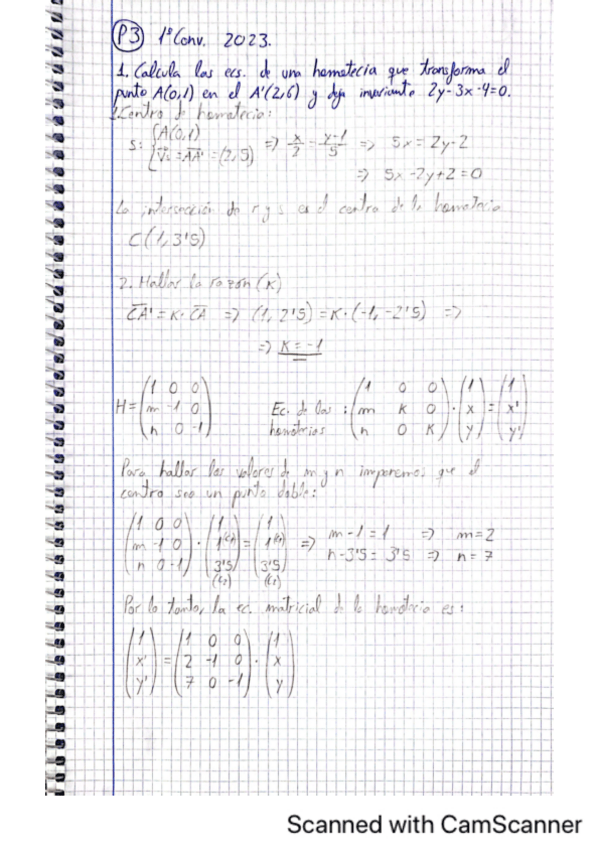 P3 1ª Conv. 2023.
1. Calcula las ecs. de una homotecia que transforma el
punto A(0,1) en el A'(2,6) y deja invariante 2y-3x-4=0.
1. Centro de homotecia:
S: { A(0,1) V⃗s = AA' = (2,5) => x/2 = y-1/5 => 5x = 2y-2
=> 5x-2y+2=0
La intersección de r y s es el centro de la homotecia
C(1, 3'5)
2. Hallar la razón (K)
CA' = K · CA => (1, 2'5) = K · (-1, -2'5) =>
=> K = -1
H = (1 0 0 / m -1 0 / n 0 -1) Ec. de las homotecias : (1 0 0 / m K 0 / n 0 K) · (1 / x / y) = (1 / x' / y')
Para hallar los valores de m y n imponemos que el
centro sea un punto doble:
(1 0 0 / m -1 0 / n 0 -1) · (1 / 1 (c1) / 3'5 (c2)) = (1 / 1 (c1) / 3'5 (c2)) => m-1=1 => m=2
n-3'5 = 3'5 => n=7
Por lo tanto, la ec. matricial de la homotecia es:
(1 / x' / y') = (1 0 0 / 2 -1 0 / 7 0 -1) · (1 / x / y)
Scanned with CamScanner